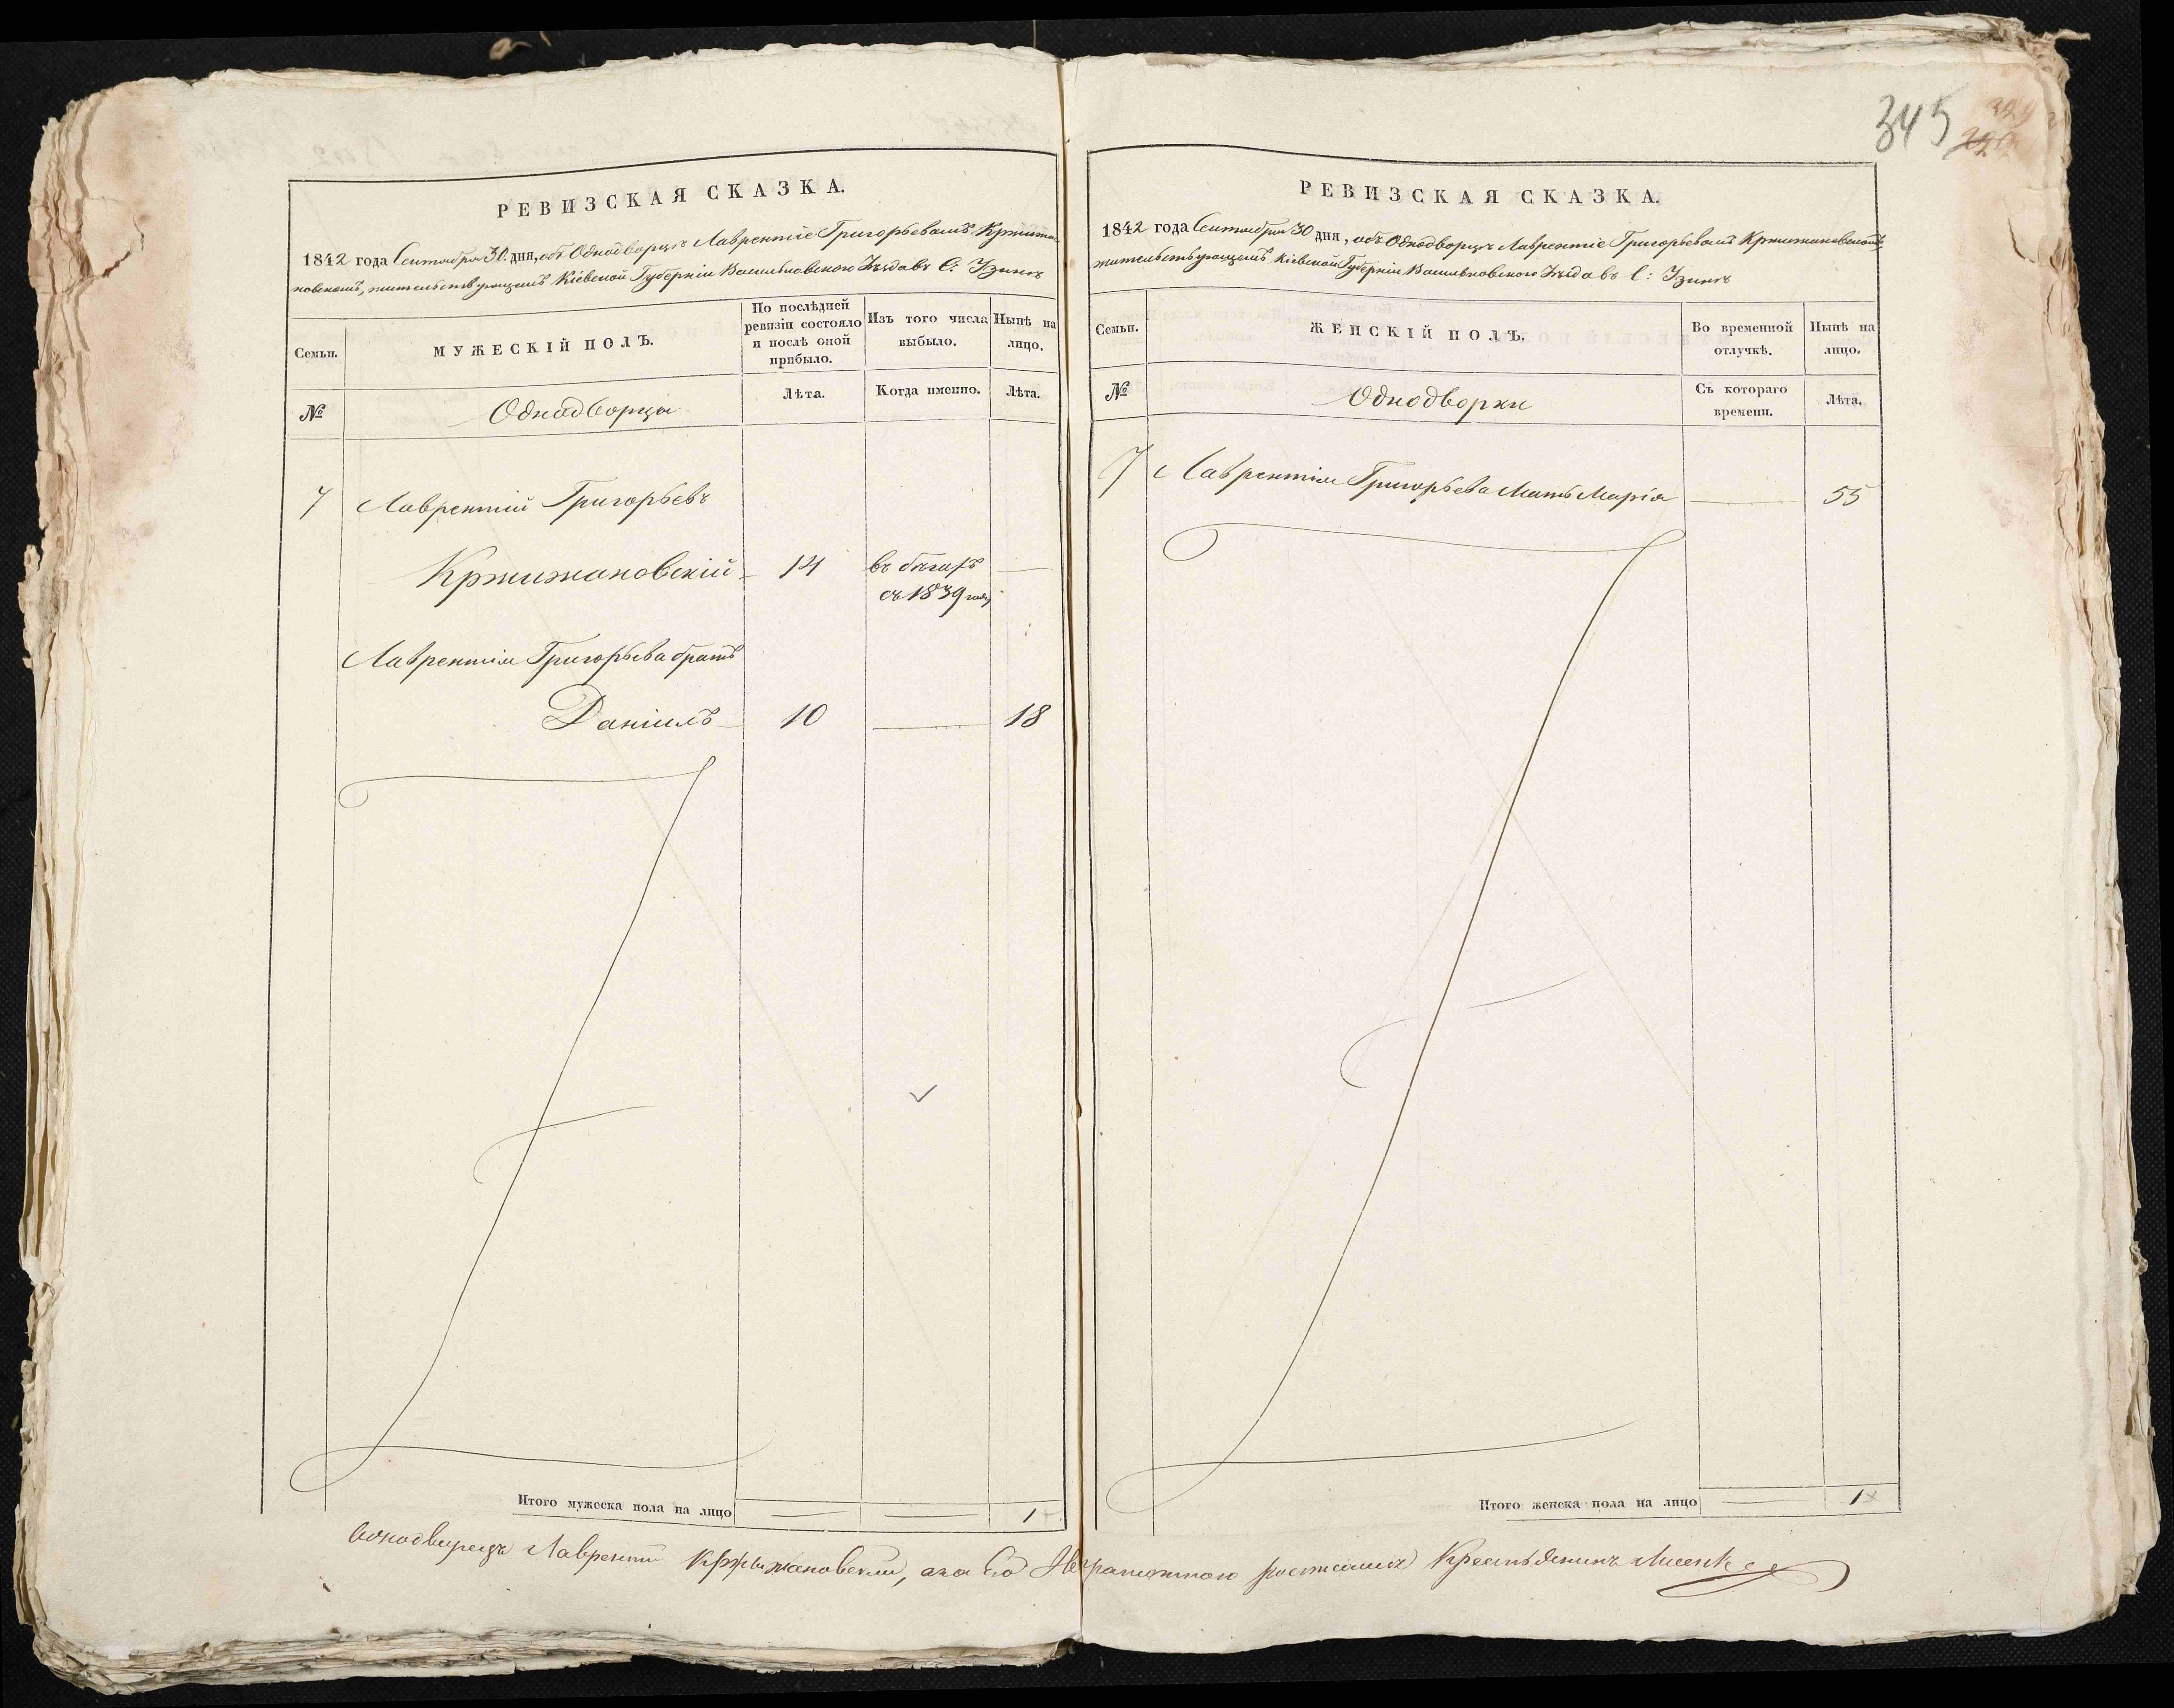 345
РЕВИЗСКАЯ СКАЗКА.
1842 года Сентября 30. дня, объ Однодворцѣ Лаврентіе Григорьевомъ Кржижа
новскомъ, жительствующемъ Кіевской Губерніи Васильковскаго Уѣзда въ С: Узинѣ
Семьи.
МУЖЕСКІЙ ПОЛЪ.
По послѣдней
ревизіи состояло
и послѣ оной
прибыло.
Изъ того числа
выбыло.
Нынѣ на
лицо.
№
Однодворцы
Лѣта.
Когда именно.
Лѣта.
7 Лаврентій Григорьевъ
Кржижановскій 14 въ бѣгахъ
съ 1839 года
Лаврентія Григорьева братъ
Даніилъ 10 18
Итого мужеска пола на лицо 1
РЕВИЗСКАЯ СКАЗКА.
1842 года Сентября 30 дня, объ Однодворцѣ Лаврентіе Григорьевомъ Кржижановскомъ
жительствующемъ Кіевской Губерніи Васильковскаго Уѣзда въ С: Узинѣ
Семьи.
ЖЕНСКІЙ ПОЛЪ.
Во временной
отлучкѣ.
Нынѣ на
лицо.
№
Однодворки
Съ котораго
времени.
Лѣта.
7 Лаврентія Григорьева Мать Марія 55
Итого женска пола на лицо 1
Однодворецъ Лаврентий Кржижановский, а за его Неграмотного росписался Крестьянинъ